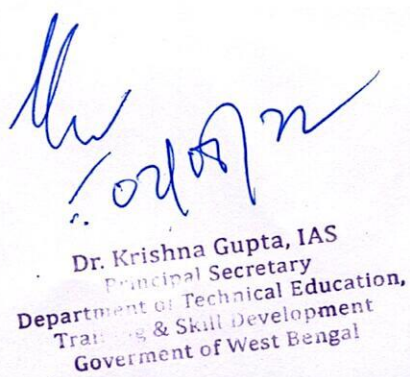 Dr. Krishna Gupta, IAS
Principal Secretary
Department of Technical Education,
Training & Skill Development
Goverment of West Bengal